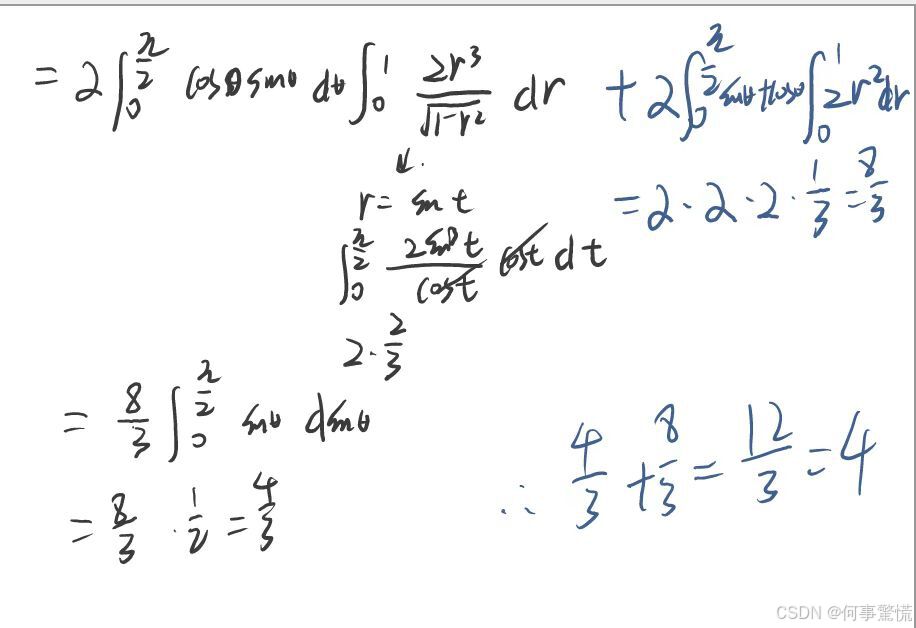 = 2∫₀^{π/2} cosθ sinθ dθ ∫₀^1 2r³/√(1-r²) dr + 2∫₀^{π/2} sinθ+cosθ ∫₀^1 2r²dr
↓.
r = sin t
= 2·2·2·1/3 = 8/3
∫₀^{π/2} 2sin³t/cost cost dt
2·2/3
= 8/3 ∫₀^{π/2} sinθ dsinθ
= 8/3 · 1/2 = 4/3
∴ 4/3 + 8/3 = 12/3 = 4
CSDN @何事驚慌